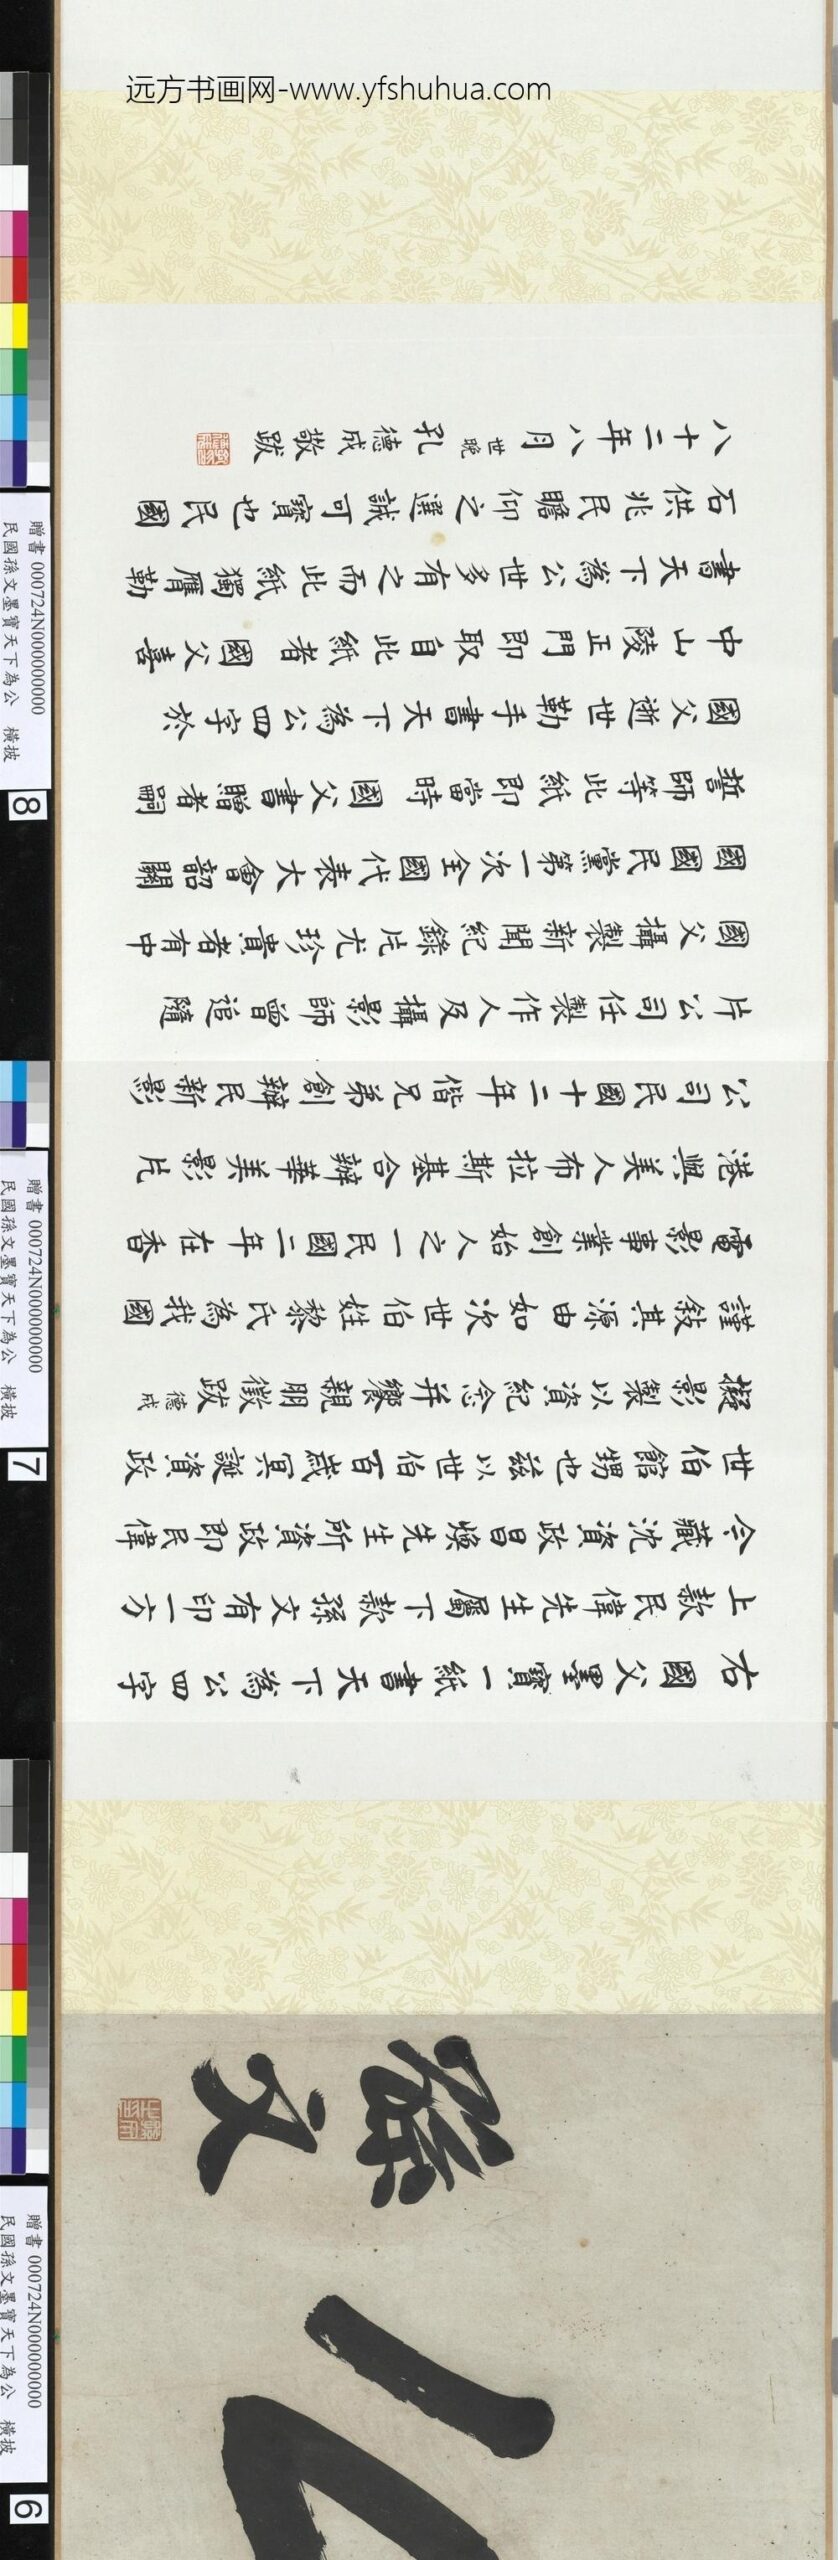 远方书画网-www.yfshuhua.com
右國父墨寶一紙書天下為公四字
上款民偉先生屬下款孫文有印一方
今藏沈資政昌煥先生所資政即民偉
世伯館甥也茲以世伯百歲冥誕資政
擬影製以資紀念并饗親朋徵跋德成
謹敍其源由如次世伯姓黎氏為我國
電影事業創始人之一民國二年在香
港與美人布拉斯基合辦華美影片
公司民國十二年偕兄弟創辦民新影
片公司任製作人及攝影師曾追隨
國父攝製新聞紀錄片尤珍貴者有中
國國民黨第一次全國代表大會韶關
誓師等此紙即當時國父書贈者嗣
國父逝世勒手書天下為公四字於
中山陵正門即取自此紙者國父喜
書天下為公世多有之而此紙獨膺勒
石供兆民瞻仰之選誠可寶也民國
八十二年八月世晚孔德成敬跋
公
孫文
贈書 000724N000000000
民國孫文墨寶天下為公 橫披
8
贈書 000724N000000000
民國孫文墨寶天下為公 橫披
7
贈書 000724N000000000
民國孫文墨寶天下為公 橫披
6